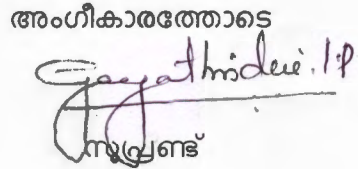 അംഗീകാരത്തോടെ
Gayathridevi. I.P
സൂപ്രണ്ട്